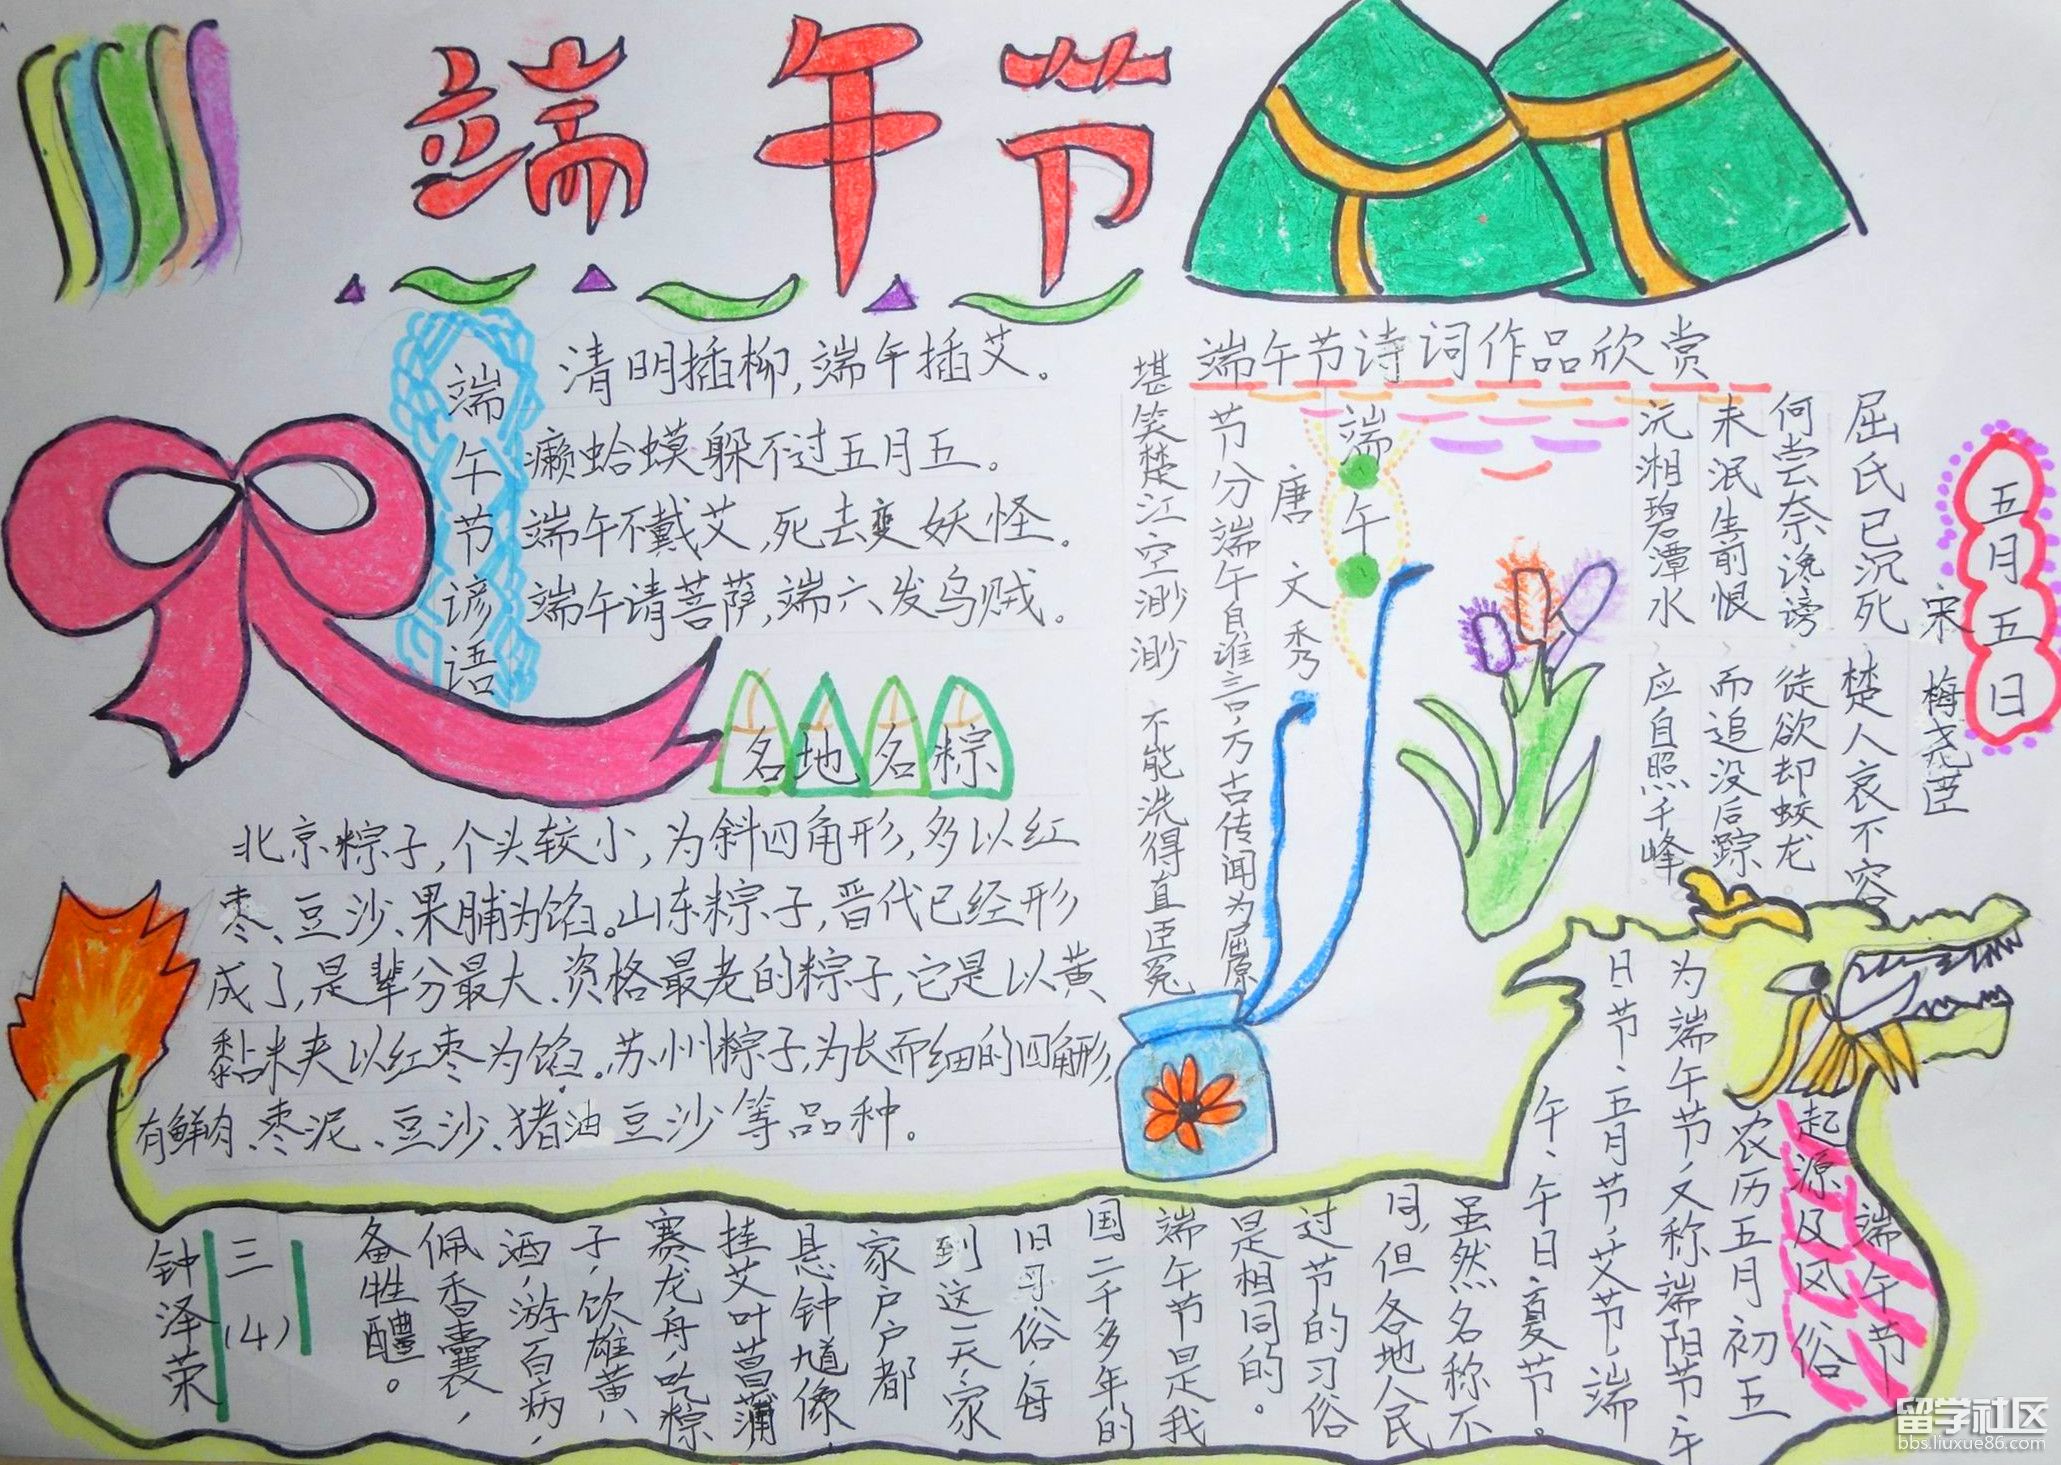 端午节
端午节谚语
清明插柳,端午插艾。
癞蛤蟆躲不过五月五。
端午不戴艾,死去变妖怪。
端午请菩萨,端六发乌贼。
名地名粽
北京粽子,个头较小,为斜四角形,多以红
枣、豆沙、果脯为馅。山东粽子,晋代已经形
成了,是辈分最大、资格最老的粽子,它是以黄
黏米夹以红枣为馅。苏州粽子,为长而细的四角形,
有鲜肉、枣泥、豆沙、猪油豆沙等品种。
端午节诗词作品欣赏
五月五日
宋 梅尧臣
屈氏已沉死 楚人哀不容
何尝奈谗谤 徒欲却蛟龙
未泯生前恨 而追没后踪
沅湘碧潭水 应自照千峰
端午
唐 文秀
节分端午自谁言,万古传闻为屈原
堪笑楚江空渺渺 不能洗得直臣冤
端午节
起源及风俗
农历五月初五
为端午节,又称端阳节、午
日节、五月节,艾节、端
午、午日、夏节。
虽然名称不
同,但各地人民
过节的习俗
是相同的。
端午节是我
国二千多年的
旧习俗,每
到这一天,家
家户户都
悬钟馗像,
挂艾叶菖蒲
赛龙舟,吃粽
子,饮雄黄
酒,游百病,
佩香囊,
备牲醴。
三(4)
钟泽荣
留学社区
bbs.liuxue86.com